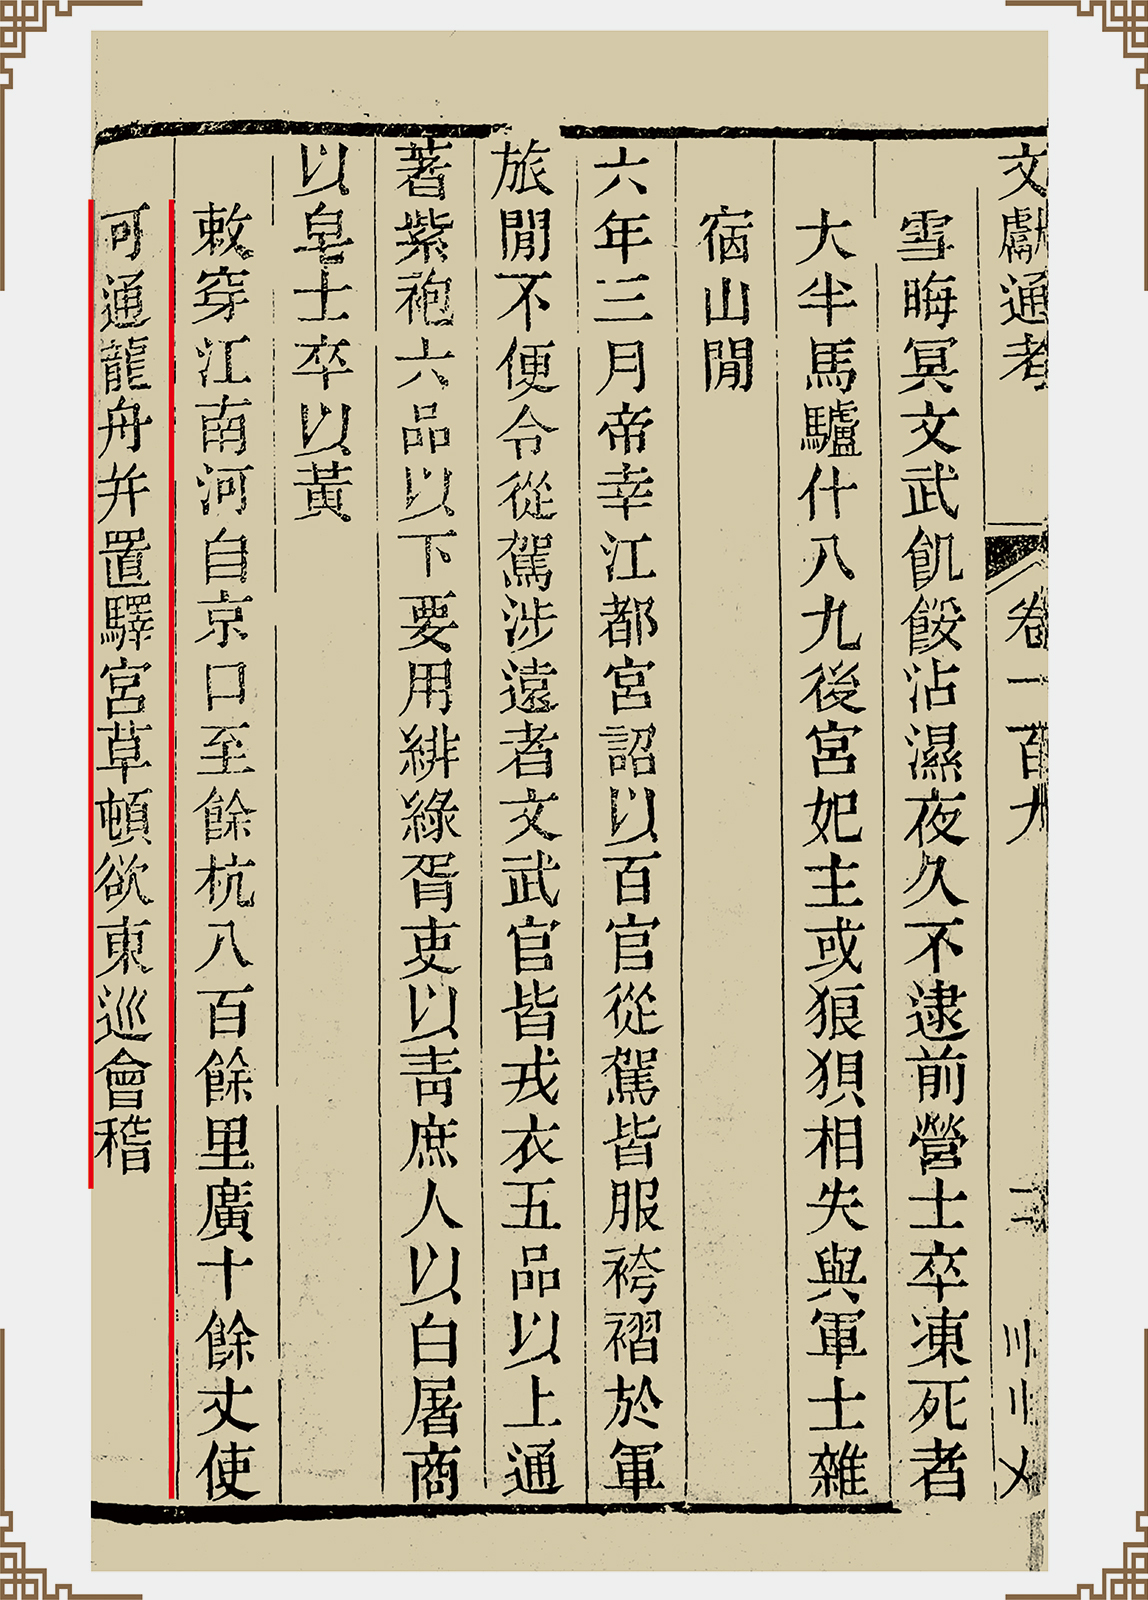 文獻通考 卷一百九 二
雪晦冥文武飢餒沾濕夜久不逮前營士卒凍死者
大半馬驢什八九後宮妃主或狼狽相失與軍士雜
宿山閒
六年三月帝幸江都宮詔以百官從駕皆服袴褶於軍
旅閒不便令從駕涉遠者文武官皆戎衣五品以上通
著紫袍六品以下要用緋綠胥吏以靑庶人以白屠商
以皂士卒以黃
敕穿江南河自京口至餘杭八百餘里廣十餘丈使
可通龍舟并置驛宮草頓欲東巡會稽